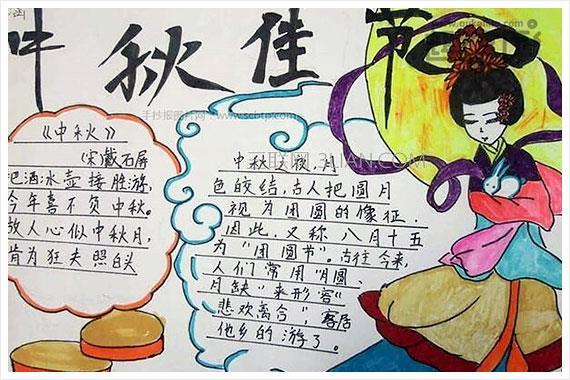 中秋佳节
《中秋》
宋戴石屏
把酒冰壶接胜游，
今年喜不负中秋。
故人心似中秋月，
肯为狂夫照白头
中秋之夜，月
色皎结，古人把圆月
视为团圆的像征，
因此，又称八月十五
为“团圆节”。古往今来，
人们常用“月圆、
月缺”来形容“
悲欢离合”，客居
他乡的游了。
手抄报图片网·www.scbtp.com
3LIAN.COM